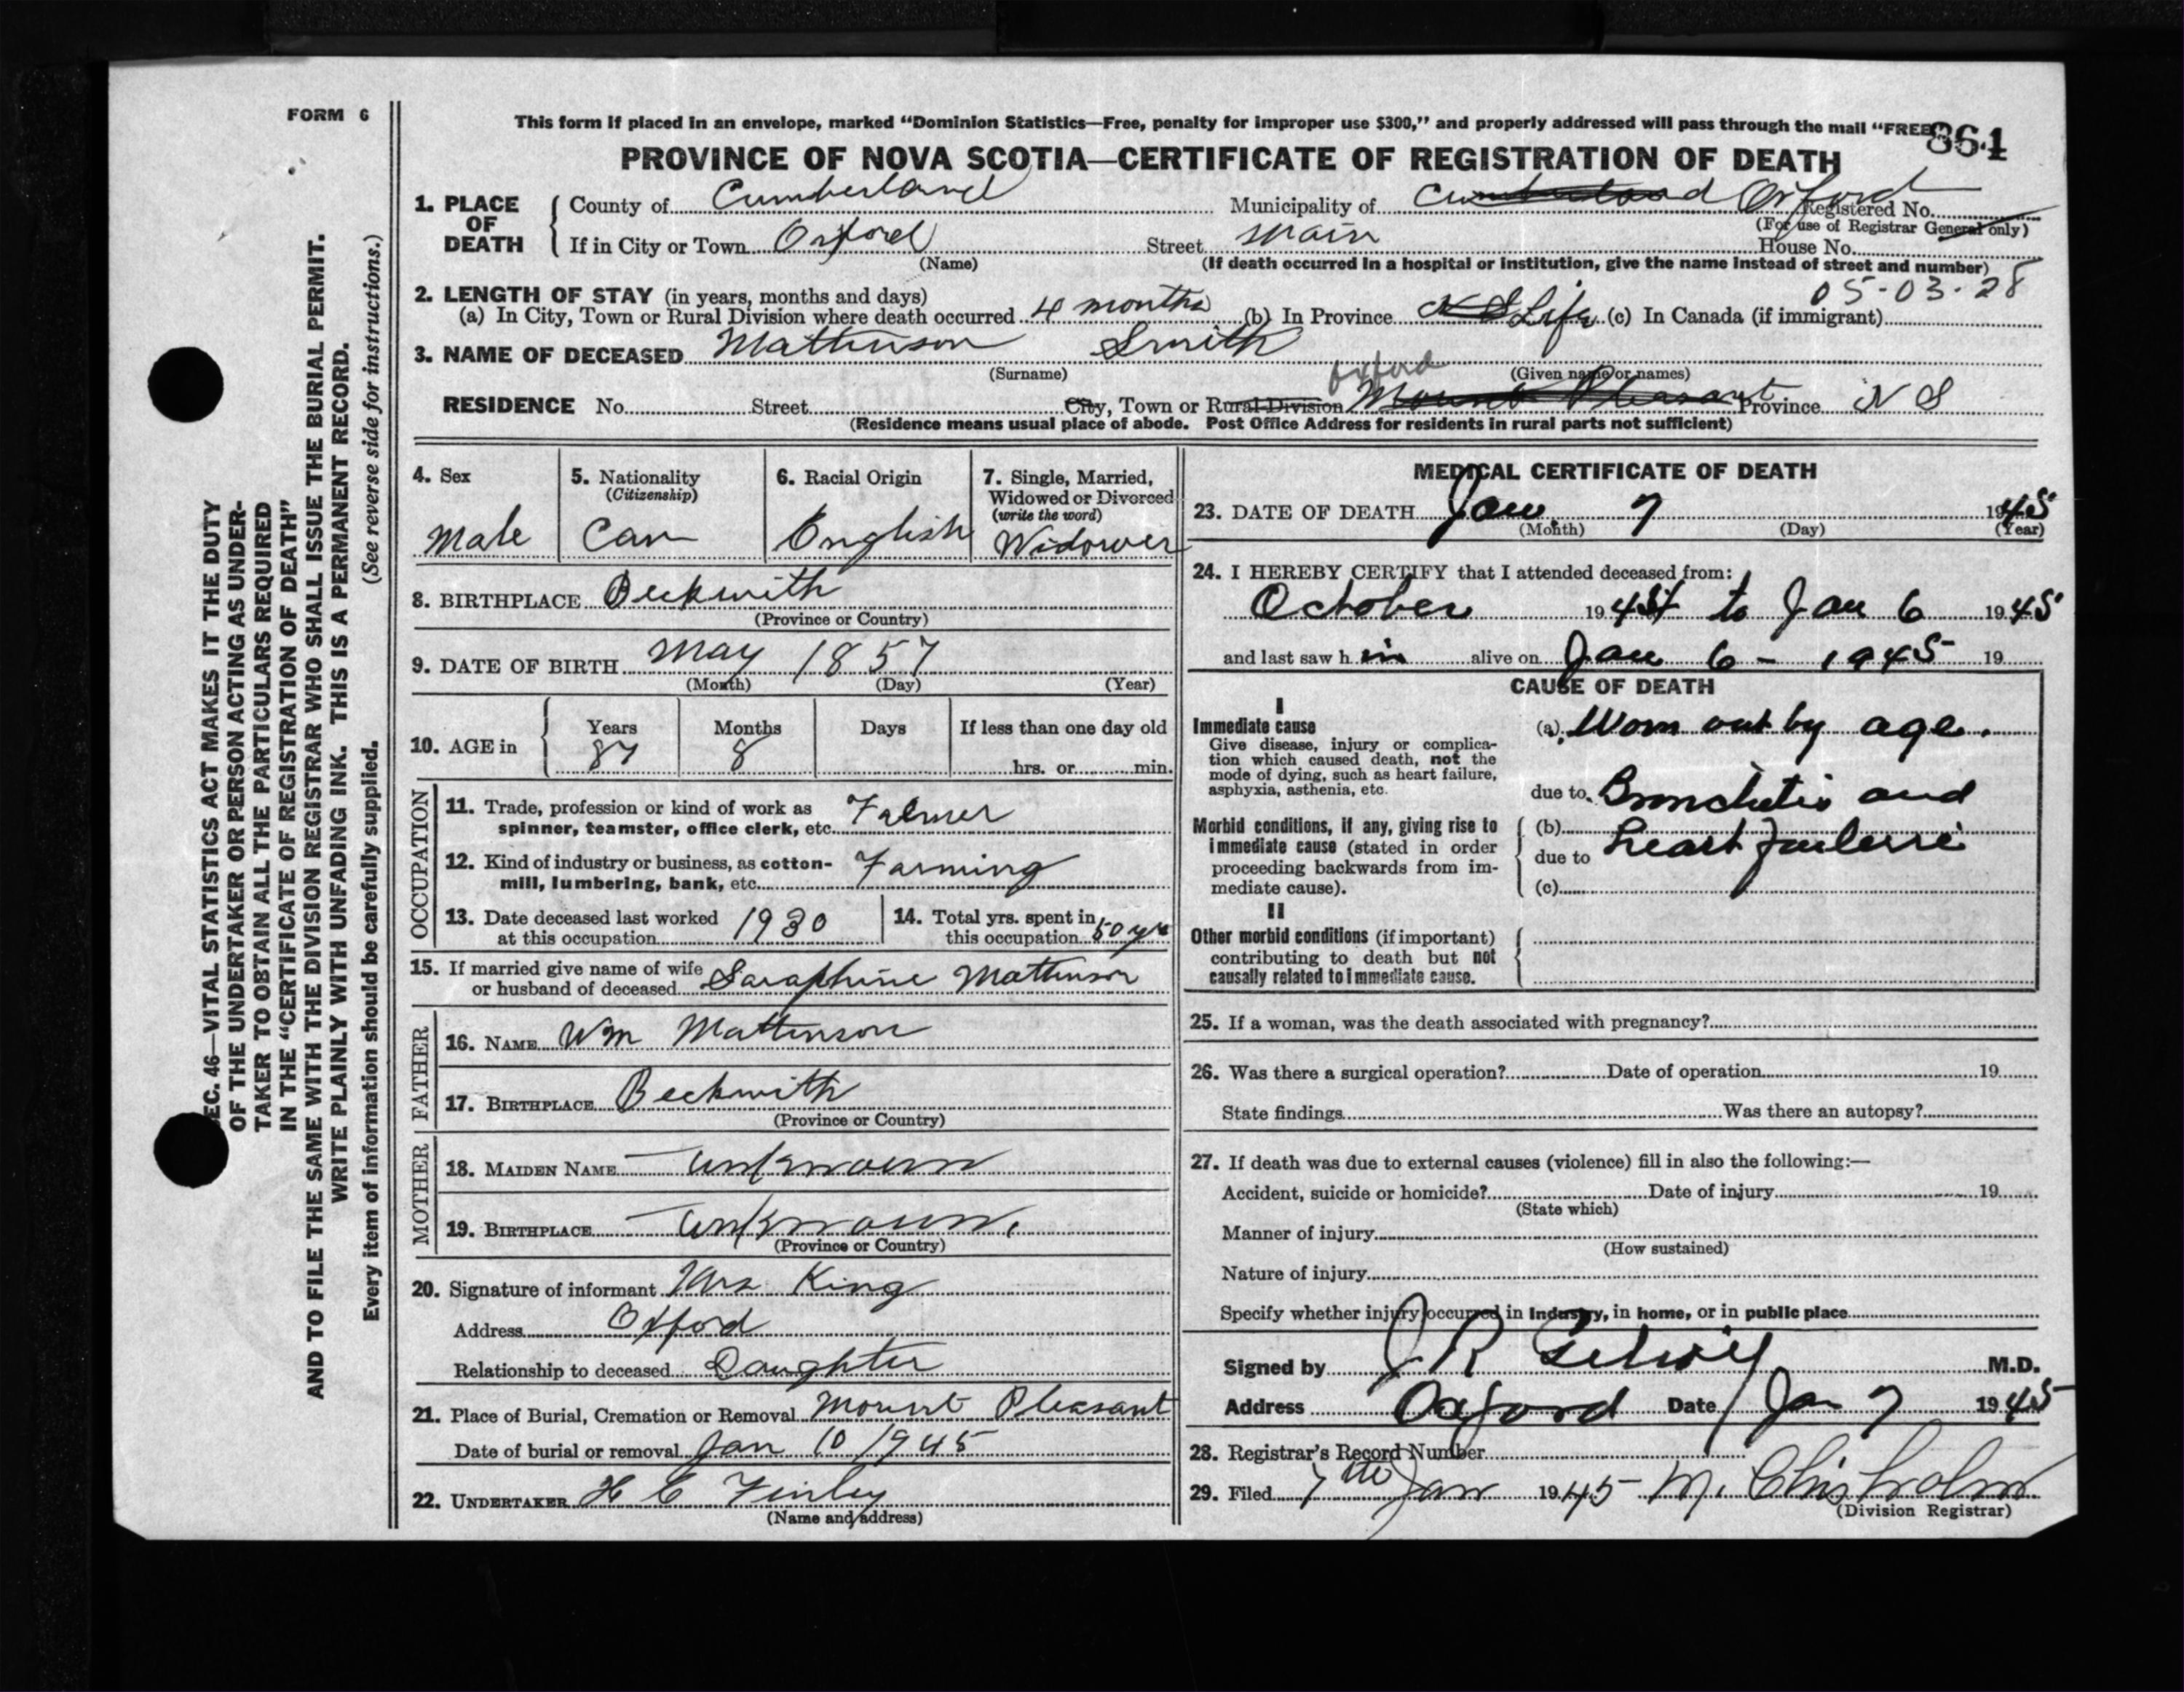 FORM 6
This form if placed in an envelope, marked “Dominion Statistics—Free, penalty for improper use $300,” and properly addressed will pass through the mail “FREE
861
PROVINCE OF NOVA SCOTIA—CERTIFICATE OF REGISTRATION OF DEATH
1. PLACE OF DEATH
County of Cumberland Municipality of Cumberland Oxford Registered No.
(For use of Registrar General only)
If in City or Town Oxford Street Main House No.
(Name) (If death occurred in a hospital or institution, give the name instead of street and number)
05-03-28
2. LENGTH OF STAY (in years, months and days)
(a) In City, Town or Rural Division where death occurred 4 months (b) In Province N S Life (c) In Canada (if immigrant)
3. NAME OF DECEASED Mattinson Smith
(Surname) (Given name or names)
Oxford
RESIDENCE No. Street City, Town or Rural Division Mount Pleasant Province N S
(Residence means usual place of abode. Post Office Address for residents in rural parts not sufficient)
4. Sex
Male
5. Nationality
(Citizenship)
Can
6. Racial Origin
English
7. Single, Married,
Widowed or Divorced
(write the word)
Widower
8. BIRTHPLACE Beckwith
(Province or Country)
9. DATE OF BIRTH May 1857
(Month) (Day) (Year)
10. AGE in
Years Months Days If less than one day old
87 8 hrs. or min.
OCCUPATION
11. Trade, profession or kind of work as
spinner, teamster, office clerk, etc. Farmer
12. Kind of industry or business, as cotton-
mill, lumbering, bank, etc. Farming
13. Date deceased last worked
at this occupation 1930
14. Total yrs. spent in
this occupation 50 yrs
15. If married give name of wife
or husband of deceased Saraphine Mattinson
FATHER
16. NAME Wm Mattinson
17. BIRTHPLACE Beckwith
(Province or Country)
MOTHER
18. MAIDEN NAME unknown
19. BIRTHPLACE unknown.
(Province or Country)
20. Signature of informant Mrs King
Address Oxford
Relationship to deceased Daughter
21. Place of Burial, Cremation or Removal Mount Pleasant
Date of burial or removal Jan 10 1945
22. UNDERTAKER H E Finley
(Name and address)
MEDICAL CERTIFICATE OF DEATH
23. DATE OF DEATH Jan. 7 1945
(Month) (Day) (Year)
24. I HEREBY CERTIFY that I attended deceased from:
October 1944 to Jan 6 1945
and last saw h im alive on Jan 6 - 1945 19
CAUSE OF DEATH
I
Immediate cause
Give disease, injury or complica-
tion which caused death, not the
mode of dying, such as heart failure,
asphyxia, asthenia, etc.
(a) Worn out by age.
due to Bronchitis and
Morbid conditions, if any, giving rise to
immediate cause (stated in order
proceeding backwards from im-
mediate cause).
(b)
due to heart failure
(c)
II
Other morbid conditions (if important)
contributing to death but not
causally related to immediate cause.
25. If a woman, was the death associated with pregnancy?
26. Was there a surgical operation? Date of operation 19
State findings Was there an autopsy?
27. If death was due to external causes (violence) fill in also the following:—
Accident, suicide or homicide? Date of injury 19
(State which)
Manner of injury
(How sustained)
Nature of injury
Specify whether injury occurred in industry, in home, or in public place
Signed by J R M.D.
Address Oxford Date Jan 7 1945
28. Registrar's Record Number
29. Filed 7th Jan 1945 M. Chisholm
(Division Registrar)
EC. 46—VITAL STATISTICS ACT MAKES IT THE DUTY
OF THE UNDERTAKER OR PERSON ACTING AS UNDER-
TAKER TO OBTAIN ALL THE PARTICULARS REQUIRED
IN THE “CERTIFICATE OF REGISTRATION OF DEATH”
AND TO FILE THE SAME WITH THE DIVISION REGISTRAR WHO SHALL ISSUE THE BURIAL PERMIT.
WRITE PLAINLY WITH UNFADING INK. THIS IS A PERMANENT RECORD.
Every item of information should be carefully supplied. (See reverse side for instructions.)